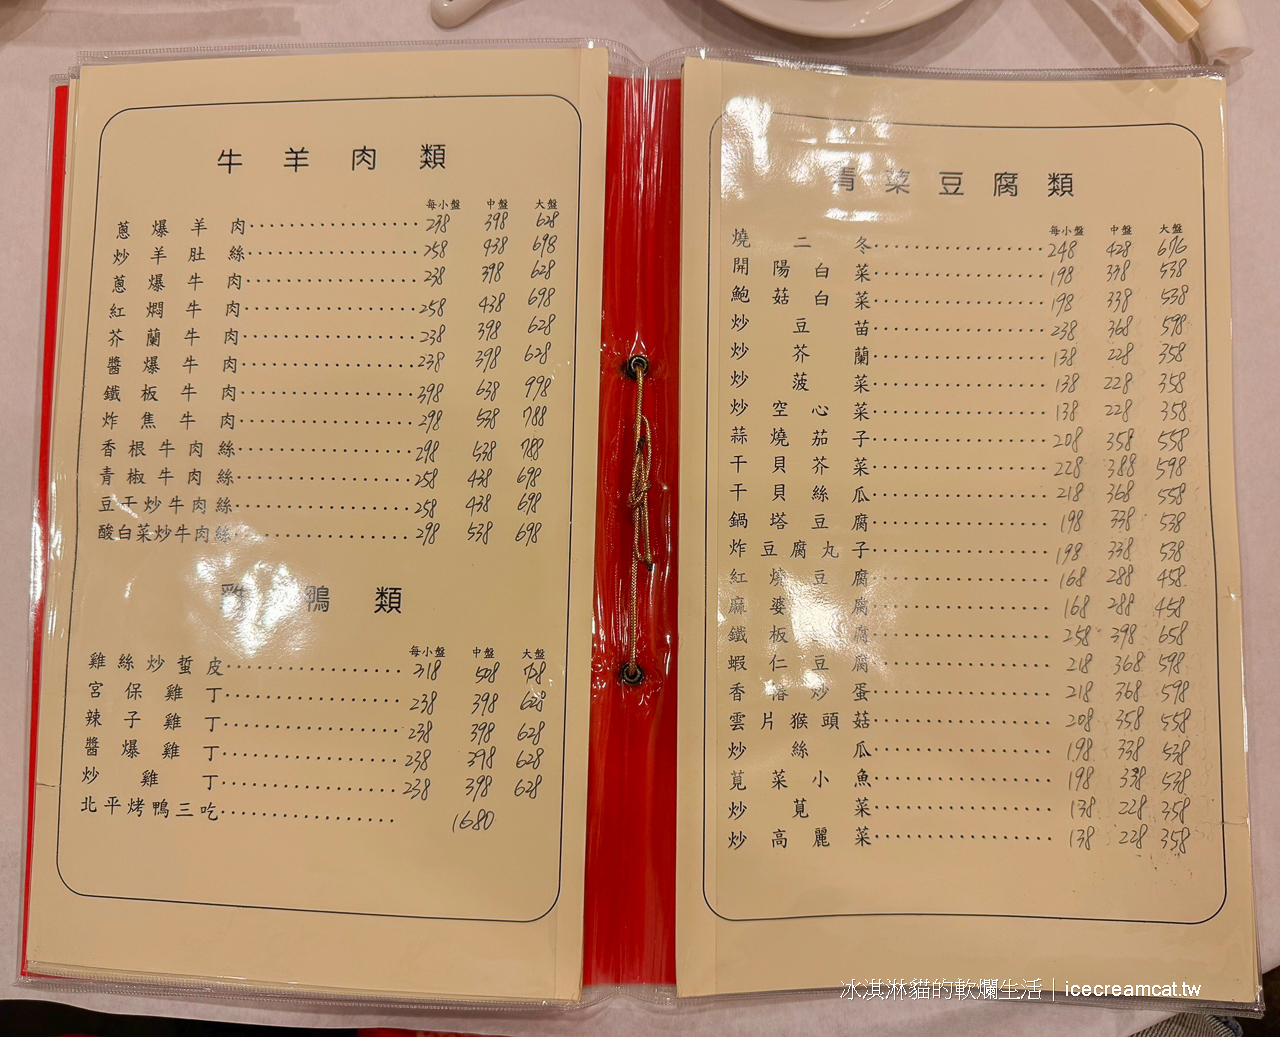 牛羊肉類
每小盤 中盤 大盤
蔥爆羊肉 238 398 628
炒羊肚絲 258 438 698
蔥爆牛肉 238 398 628
紅燜牛肉 258 438 698
芥蘭牛肉 238 398 628
醬爆牛肉 238 398 628
鐵板牛肉 398 638 998
炸焦牛肉 298 538 788
香根牛肉絲 298 538 788
青椒牛肉絲 258 438 698
豆干炒牛肉絲 258 438 698
酸白菜炒牛肉絲 298 538 698
雞鴨類
每小盤 中盤 大盤
雞絲炒蜇皮 318 508
宮保雞丁 238 398 628
辣子雞丁 238 398 628
醬爆雞丁 238 398 628
炒雞丁 238 398 628
北平烤鴨三吃 1680
青菜豆腐類
每小盤 中盤 大盤
燒二冬 248 428 696
開陽白菜 198 338 538
鮑菇白菜 198 338 538
炒豆苗 238 368 598
炒芥蘭 138 228 358
炒菠菜 138 228 358
炒空心菜 138 228 358
蒜燒茄子 208 358 558
干貝芥菜 228 388 598
干貝絲瓜 218 368 558
鍋塔豆腐 198 338 538
炸豆腐丸子 198 338 538
紅燒豆腐 168 288 458
麻婆豆腐 168 288 458
鐵板豆腐 258 398 658
蝦仁豆腐 218 368 598
香椿炒蛋 218 368 598
雲片猴頭菇 208 358 558
炒絲瓜 198 338 538
莧菜小魚 198 338 538
炒莧菜 138 228 358
炒高麗菜 138 228 358
冰淇淋貓的軟爛生活｜icecreamcat.tw